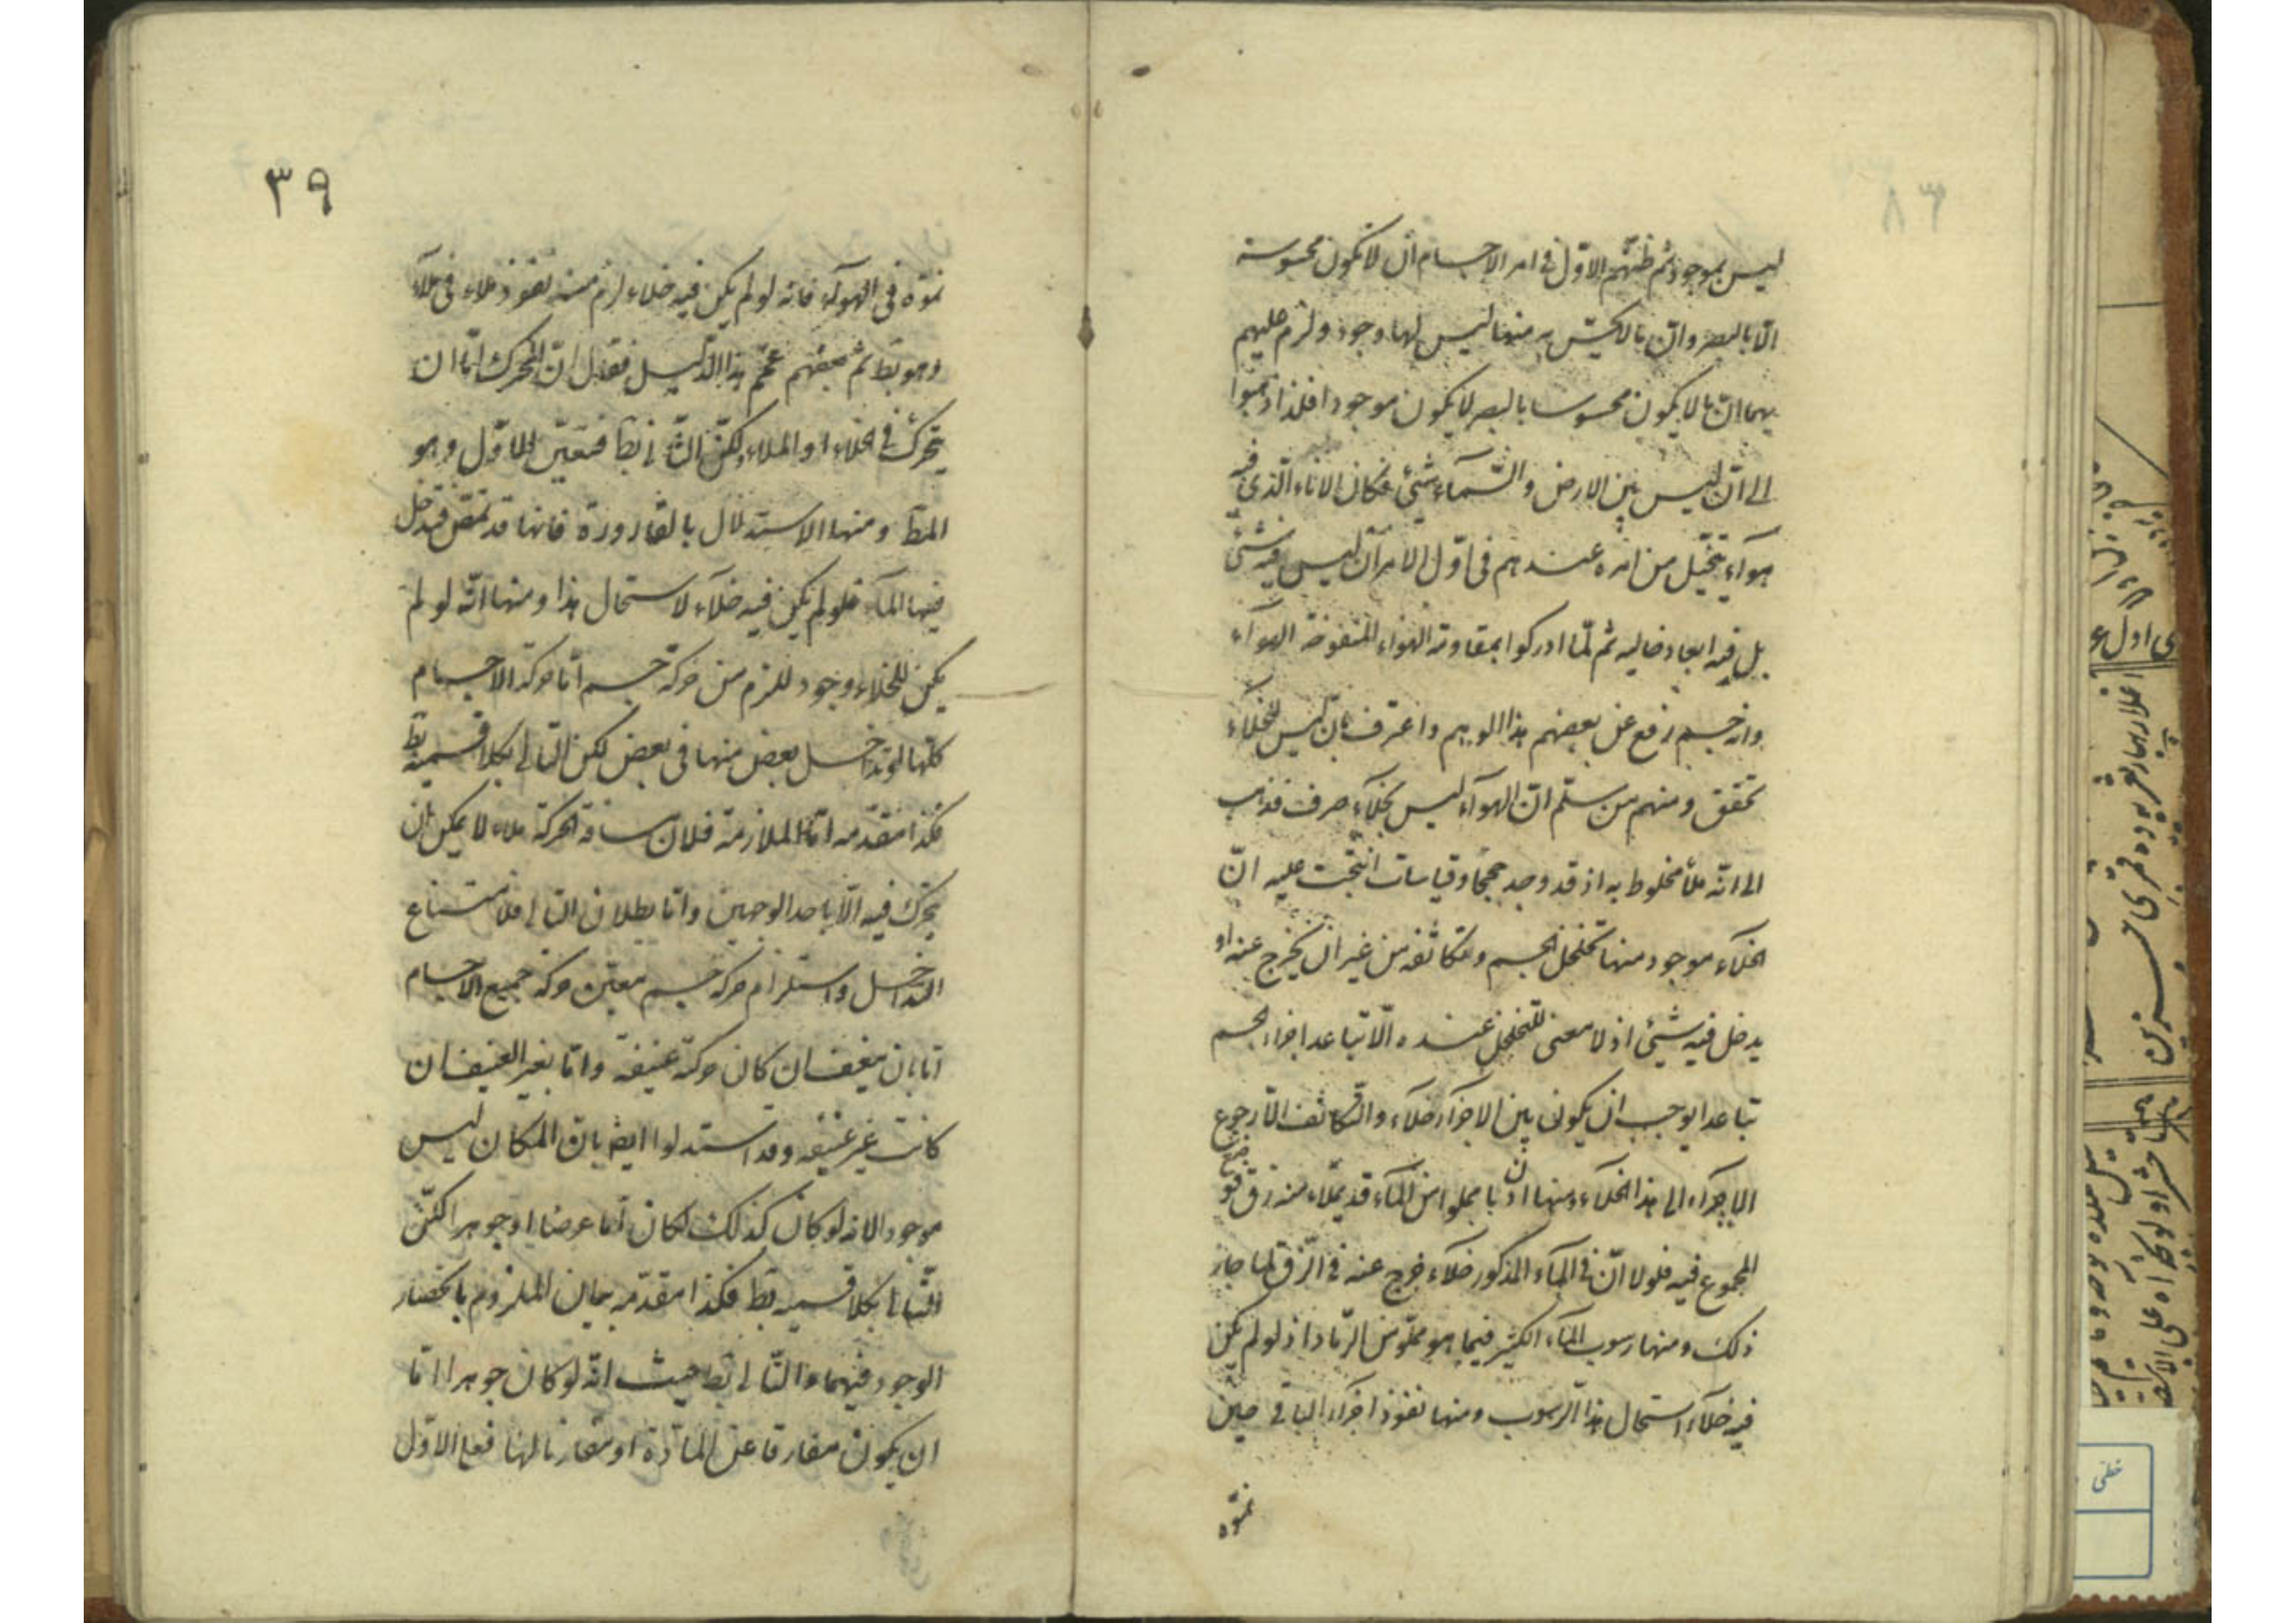 ليس بموجود ثم ظنهم الاول فى امر الاجسام ان لا تكون محسوسة
الا بالبصر وان ما لا يحس به منها ليس لها وجود ولزم عليهم
بهما ان ما لا يكون محسوسا بالبصر لا يكون موجودا فلذا ذهبوا
الى ان ليس بين الارض والسماء شئ فكان الاناء الذى فيه
هواء يتخيل من امره عندهم فى اول الامر ان ليس فيه شئ
بل فيه ابعاد خالية ثم لما ادركوا بمقاومة الهواء المنفوخة الهواء
وانه جسم رفع عن بعضهم هذا الوهم واعترف بان ليس للخلاء
تحقق ومنهم من سلم ان الهواء ليس بخلاء صرف فذهب
الى انه ملأ مخلوط به اذ قد وجد حججا وقياسات انتجت عليه ان
الخلاء موجود منها تخلخل الجسم وتكاثفه من غير ان يخرج عنه او
يدخل فيه شئ اذ لا معنى للتخلخل عنده الا تباعد اجزاء الجسم
تباعدا يوجب ان يكون بين الاجزاء خلاء والتكاثف الا رجوع
الاجزاء الى هذا الخلاء ومنها ان دنا مملوا من الماء قد يملاء منه زق فيوضع
المجموع فيه فلولا ان فى الماء المذكور خلاء خرج عنه فى الزق لما جاز
ذلك ومنها رسوب الماء الكثير فيما هو مملو من الرماد اذ لو لم يكن
فيه خلاء استحال هذا الرسوب ومنها نفوذ اجزاء النامى حين
نموه
٣٩
نموه فى الهواء فانه لو لم يكن فيه خلاء لزم منه نفوذ ملاء فى ملاء
وهو بط ثم بعضهم عمم هذا الدليل فقال ان المتحرك اما ان
يتحرك فى الخلاء او الملاء لكن الثانى بط فتعين الاول وهو
المط ومنها الاستدلال بالقارورة فانها قد تمص فيدخل
فيها الماء فلو لم يكن فيه خلاء لاستحال هذا ومنها انه لو لم
يكن للخلاء وجود للزم من حركة جسم اما حركة الاجسام
كلها او تداخل بعض منها فى بعض لكن التالى بكلا قسميه بط
فكذا مقدمه اما الملازمة فلان مسافة الحركة ملاء لا يمكن ان
يتحرك فيه الا باحد الوجهين واما بطلان التالى فلامتناع
التداخل واستلزام حركة جسم معين حركة جميع الاجسام
اما بان كان حركة عنيفة واما بغير العنيف ان
كانت غير عنيفه وقد استدلوا ايضا بان المكان ليس
موجودا لانه لو كان كذلك لكان اما عرضا او جوهرا لكن
التالى بكلا قسميه بط فكذا مقدمه بيان الملزوم بانحصار
الوجود فيهما والتالى بط حيث انه لو كان جوهرا اما
ان يكون مفارقا عن المادة او مقارنا لها فعلى الاول
خطى